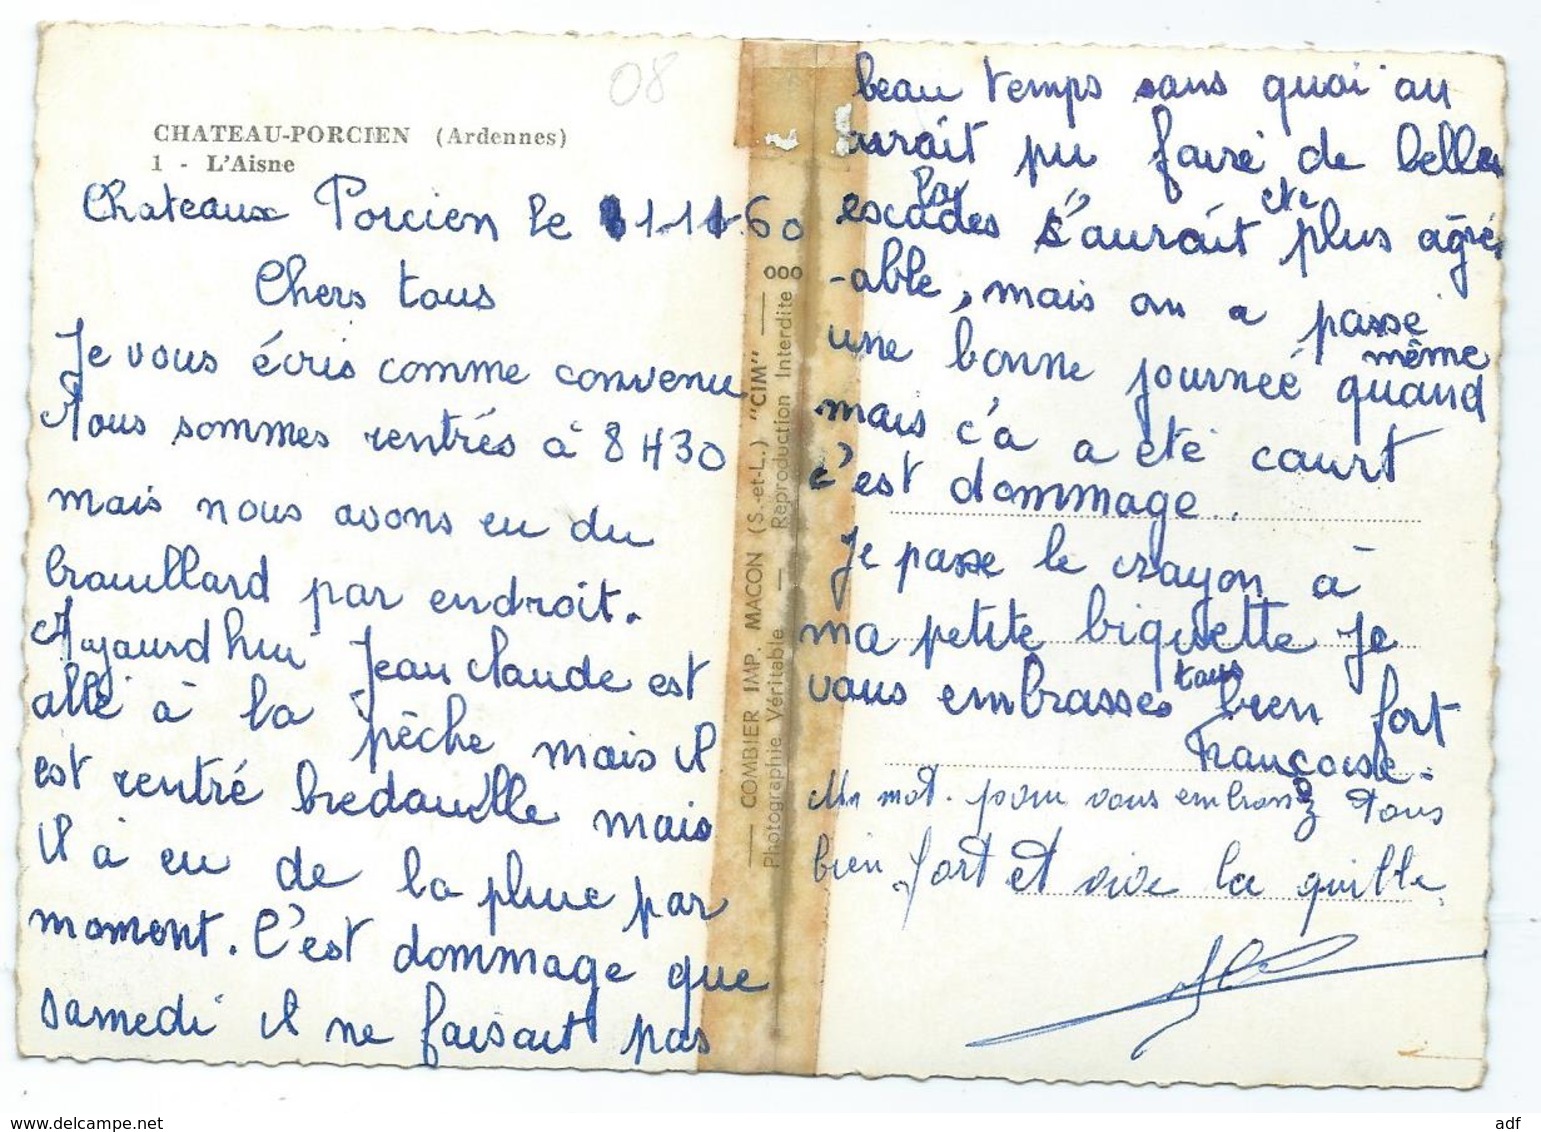 08
CHATEAU-PORCIEN (Ardennes)
1 - L'Aisne
Chateaux Porcien le 1-11-60
Chers tous
Je vous écris comme convenu
Nous sommes rentrés à 8 H 30
mais nous avons eu du
brouillard par endroit.
Aujourd hui Jean claude est
allé à la pêche mais il
est rentré bredouille mais
il à eu de la pluie par
moment. C'est dommage que
samedi il ne faisait pas
beau temps sans quoi on
aurait pu faire de belles
escapades s'aurait été plus agré
-able, mais on a passé
une bonne journée quand même
mais c'à a été court
c'est dommage..
Je passe le crayon à
ma petite biquette Je
vous embrasse tous bien fort
Françoise.
Un mot. pour vous embrassez tous
bien fort et vive la quille.
COMBIER IMP. MACON (S.-et-L.) "CIM"
Photographie Véritable — Reproduction Interdite
000
adf